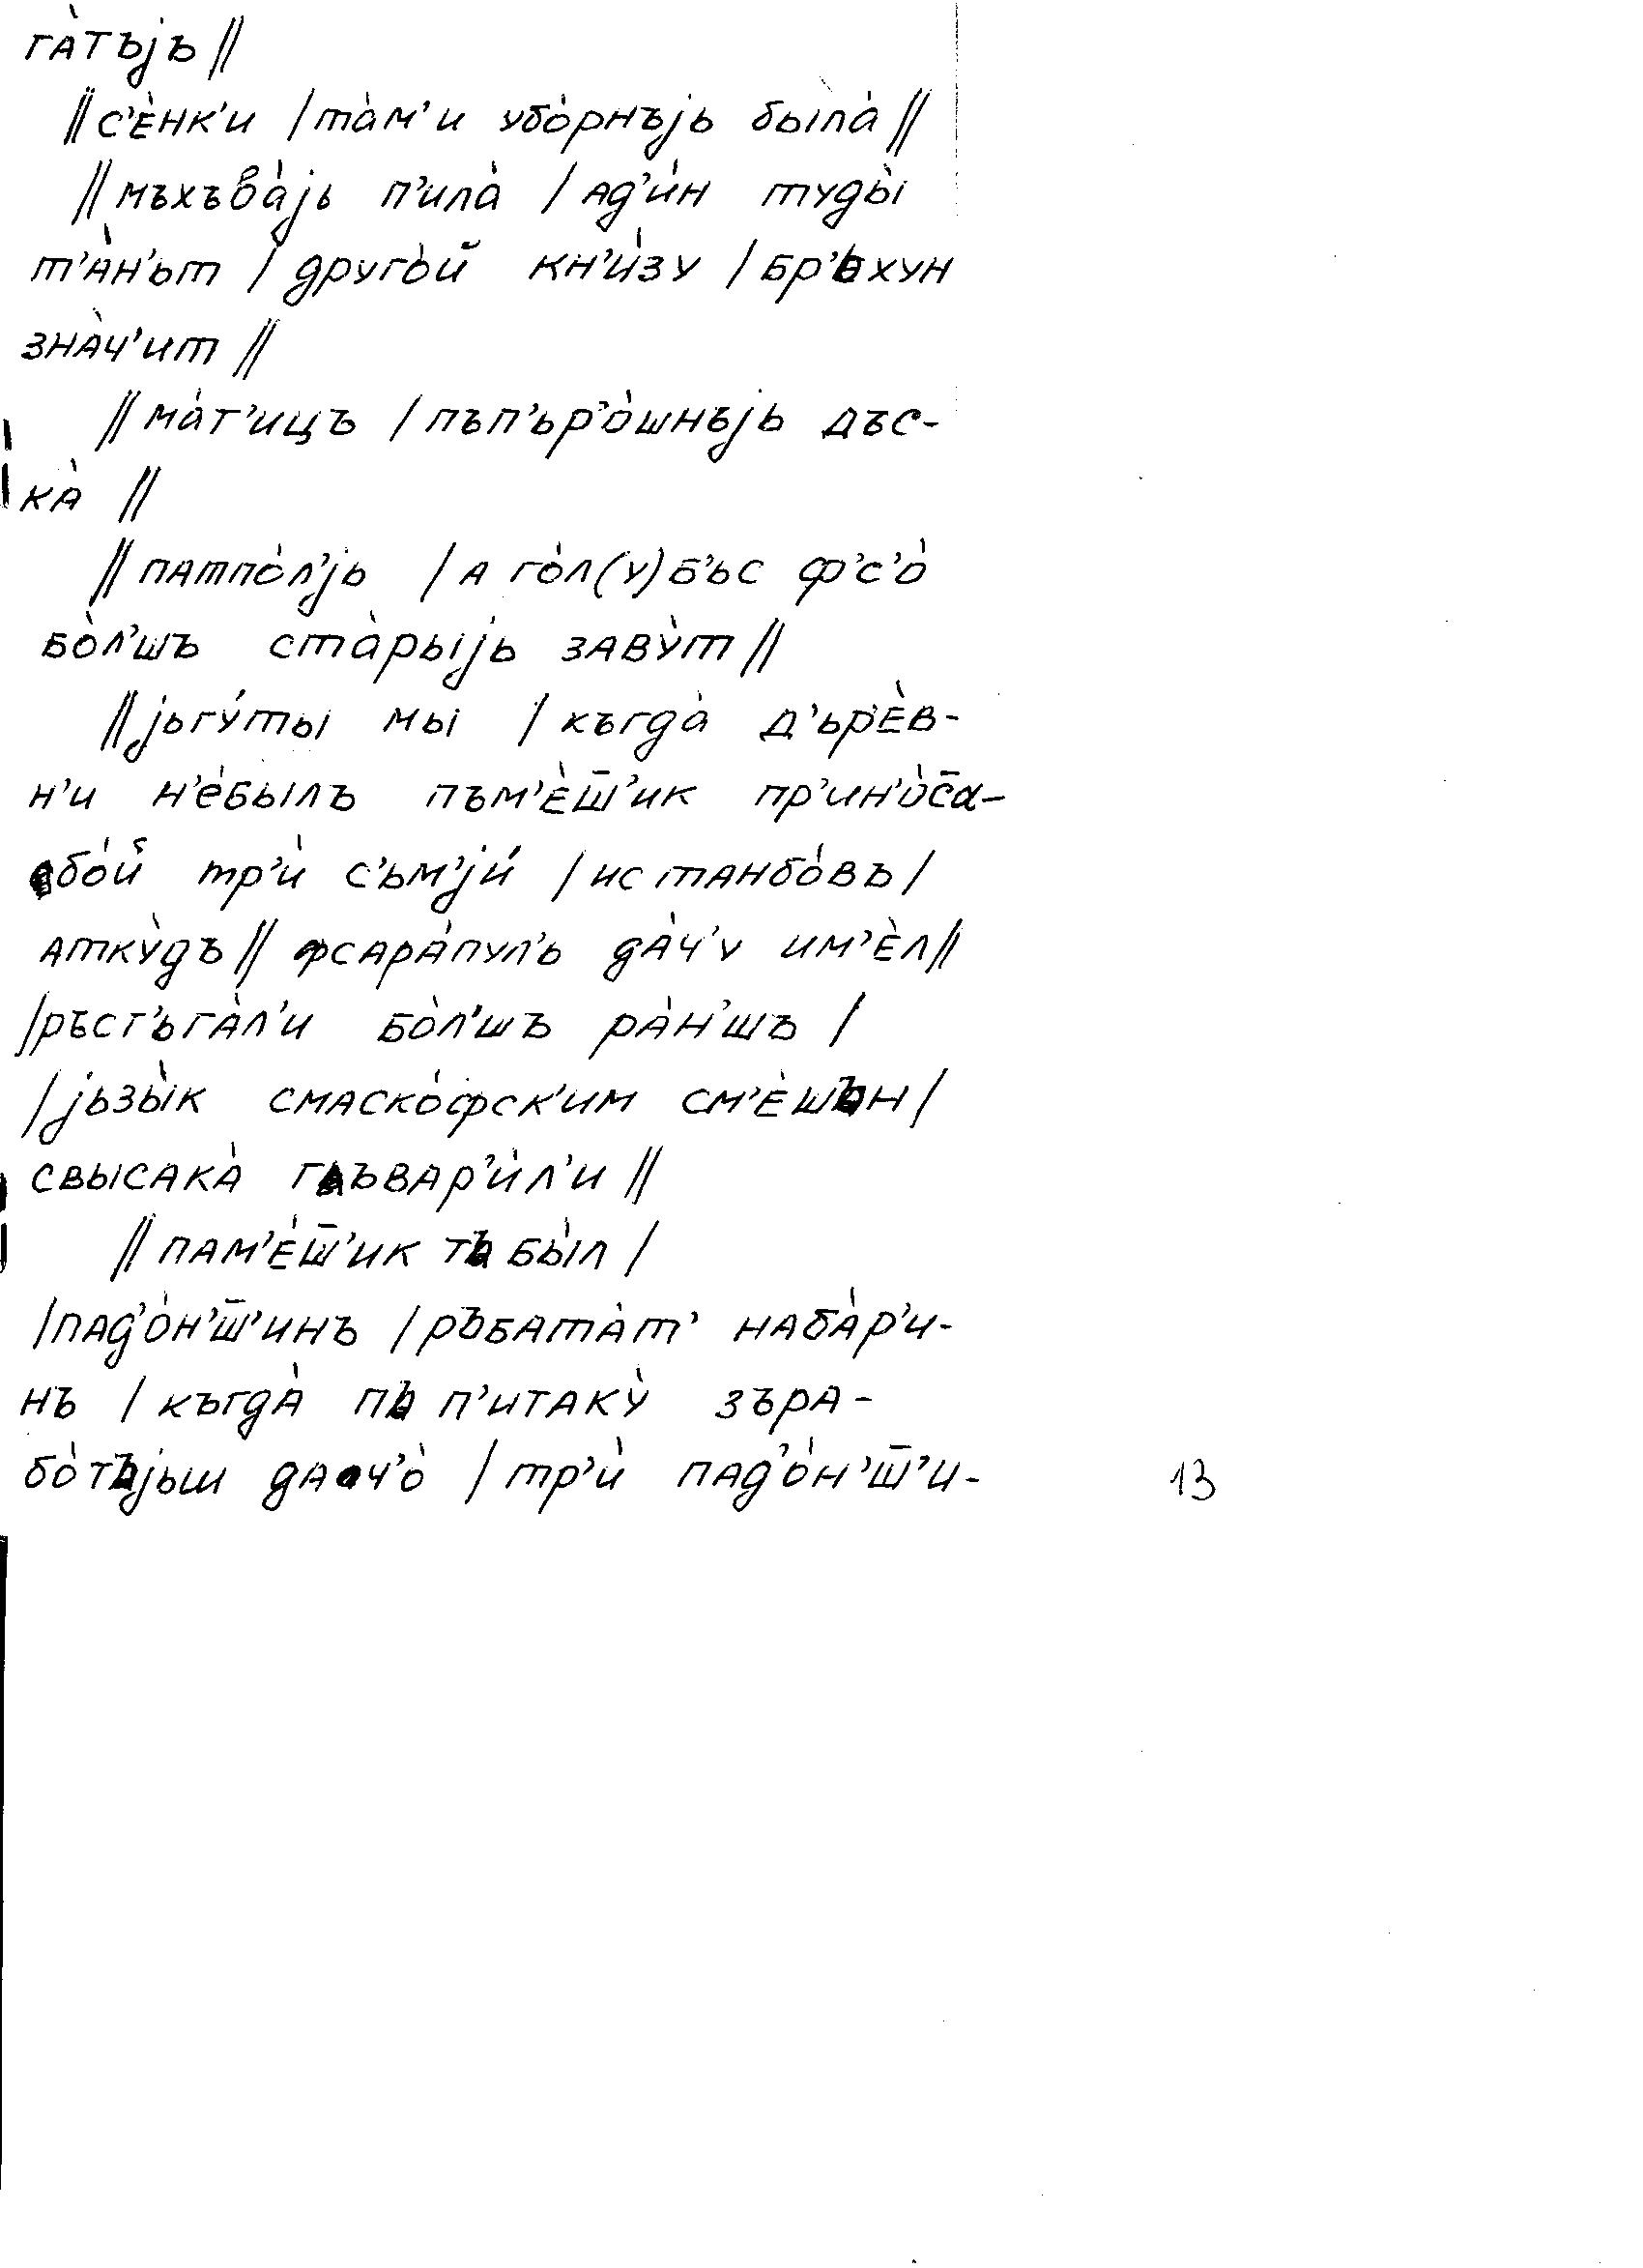 га̀тъјъ //
// с'ѐнк'и / та̀м'и убо̀рнъјь была̀ //
// мъхъва̀јь п'ила̀ / ад'ѝн туды̀
т'а̀н'ьт / друго̀й кн'ѝзу / бр'ьхун
зна̀ч'ит //
// ма̀т'ицъ / пъп'ьр'о̀шнъјь дъс-
ка̀ //
// патпо̀л'јь / а го̀л(у)б'ьс ф'с'о̀
бо̀л'шъ ста̀рыјь заву̀т //
// јьгу́ты мы / къгда̀ д'ьр'ѐв-
н'и н'ѐбылъ пъм'ѐш̄'ик пр'ин'о̀с̄а-
бо̀й тр'ѝ с'ьм'јѝ / ис танбо̀въ /
атку̀дъ // фсара̀пул'ь да̀ч'у им'ѐл //
/ ръст'ьга̀л'и бо̀л'шъ ра̀н'шъ /
/ јьзы̀к смаско̀фск'им см'ѐшън /
свысака̀ гъвар'ѝл'и //
// пам'ѐш̄'ик тъ бы̀л /
/ пад'о̀н'ш̄'инъ / ръбата̀т' наба̀р'и-
нъ / къгда̀ пъ п'итаку̀ зъра-
бо̀тъјьш дач'о̀ / тр'ѝ пад'о̀н'ш̄'и-
13